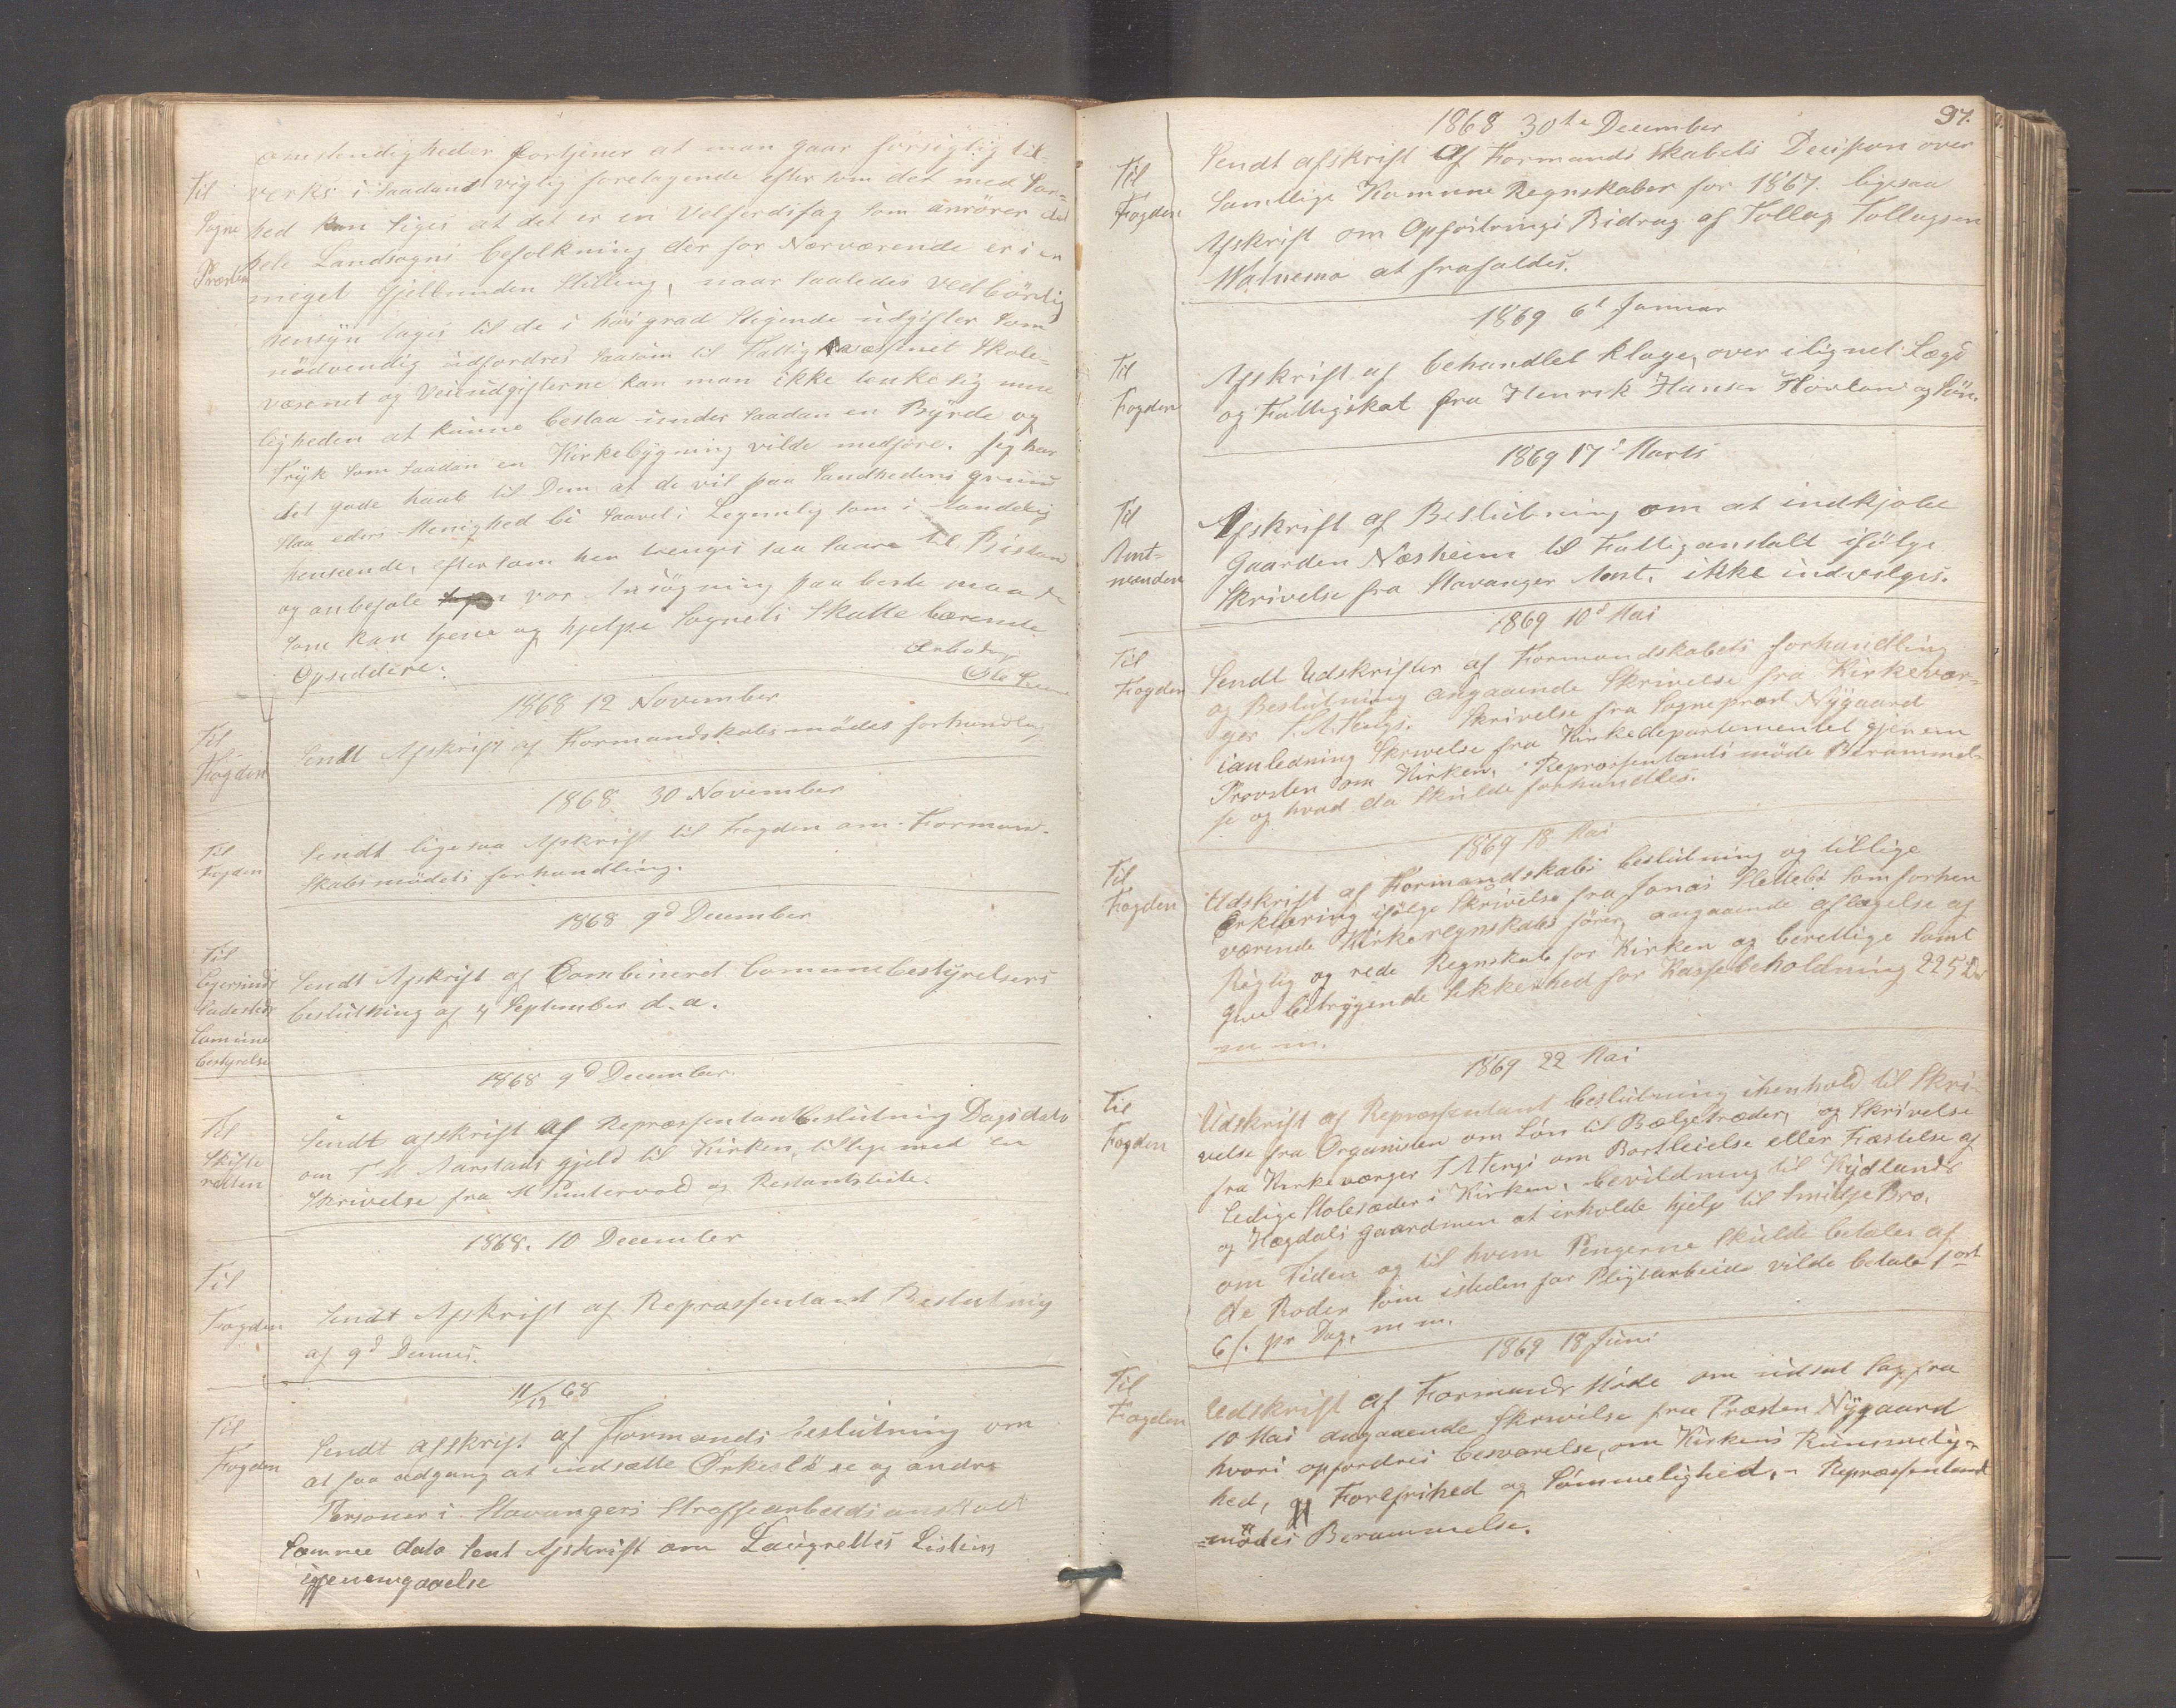 omstendigheder fortjener at man gaar forsigtig til
Til
Sogne
Præsten
verks i saadant vigtig foretagende efter som det med San-
hed kan siges at det er en Velferdssag som anrörer det
hele Landsogns befolkning der for Nærværende er i en
meget Gjelbunden Stilling, naar saaledes vedbörlig
hensyn tages til de i höi grad stigende udgifter som
nödvendig udfordres saasom til Fattigvæssenet Skole-
væsenet og Veiudgifterne kan man ikke tenke sig mue
ligheden at kunne bestaa under saadan en Byrde og
Tryk som saadan en Kirkebygning vilde medföre. Jeg har
det gode haab til Dem at de vil paa Sandhedens grund
staa eders Menighed bi saavel i Legemlig som i Aandelig
henseende, eftersom her trenges saa saare til Bistand
og anbefale vor Ansögning paa beste maade
som kan tjene og hjelpe Sognets Skatte bærende
Opsiddere.
Arbödig
Ole
1868 12 November
Til
Fogden
Sendt Afskrift af Formandskabs mödes forhandling
1868 30 November
Til
Fogden
Sendt ligesaa Afskrift til Fogden om Forman-
skabsmödets forhandling.
1868 9d December
Til
Egersunds
Ladesteds
Comune
bestyrelse
Sendt Afskrift af Combineret Comunebestyrelsers
beslutning af 4 September d. a.
1868 9d December
Til
Skifte
retten
Sendt afskrift af Repræssentantbeslutning Dags dato
om T M Aarstads gjeld til Kirken, tillige med en
Skrivelse fra M Puntervold og Restantsliste.
1868. 10 December
Til
Fogden
Sendt Afskrift af Repræssentant Beslutning
af 9d Dennes.
11/12 68
Til
Fogden
Sendt afskrift af Formands beslutning om
at faa adgang at indsætte Örkeslöse og andre
Personer i Stavangers Straffearbeidsanstalt
Samme dato sent Afskrift om Laugrettes Listens
igjenemgaaelse
97.
1868 30te December
Til
Fogden
Sendt afskrift af Formandsskabets Decision over
Samtlige Komune Regnskaber for 1867. ligesaa
Afskrift om Opfostrings Bidrag af Tollag Tollagsen
Watnemo at frafaldes.
1869 6t Januar
Til
Fogden
Afskrift af behandlet klage, over ilignet Lægd
og Fattigskat fra Henrik Hansen Hovland og Sön.
1869 17d Marts
Til
Amt-
manden
Afskrift af Beslutning om at indkjöbe
Gaarden Næsheim til Fattiganstalt ifölge
Skrivelse fra Stavanger Amt. ikke indvilges.
1869 10d Mai
Til
Fogden
Sendt Udskrifter af Formandskabets forhandling
og Beslutning angaaende Skrivelse fra Kirkevær-
ger Skrivelse fra Sognepræst Nygaard
ianledning Skrivelse fra Kirkedepartementet gjenem
Provsten om Kirken. Repræssentants möde Berammel-
se og hvad da skulde forhandles.
1869 18 Mai
Til
Fogden
Udskrift af Formandskabs beslutning og tillige
Erklæring ifölge Skrivelse fra Jonas Slettebö som forhen
værende Kirkeregnskabs förer, angaaende aflægelse af
Rigtig og rede Regnskab for Kirken og berettige samt
give betryggende sikkerhed for Kassebeholdning 225 Dr
m m.
1869 22 Mai
Til
Fogden
Udskrift af Repræssentant beslutning ihenhold til Skri-
velse fra Organisten om Lön til Bælgetræder, og Skrivelse
fra Kirkeværger om Bortleielse eller Fæstelse af
Ledige Stolesæder i Kirken, bevildning til Kydlands
og Hægdals gaardmen at erholde hjelp til Smidje Bro.
om Tiden og til hvem Pengerne skulde betales af
de Roder som isteden for Pligtarbeide vilde betale 1 ort
6 s. pr Dag. m m.
1869 18 Juni
Til
Fogden
Udskrift af Formands Möde om udsat Sag fra
10 Mai angaaende Skrivelse fra Præsten Nygaard
hvori opfordres besvarelse, om Kirkens Rummelig-
hed, og Forefrihed og Sömmelighed, - Repræssentant
=mödes Berammelse.